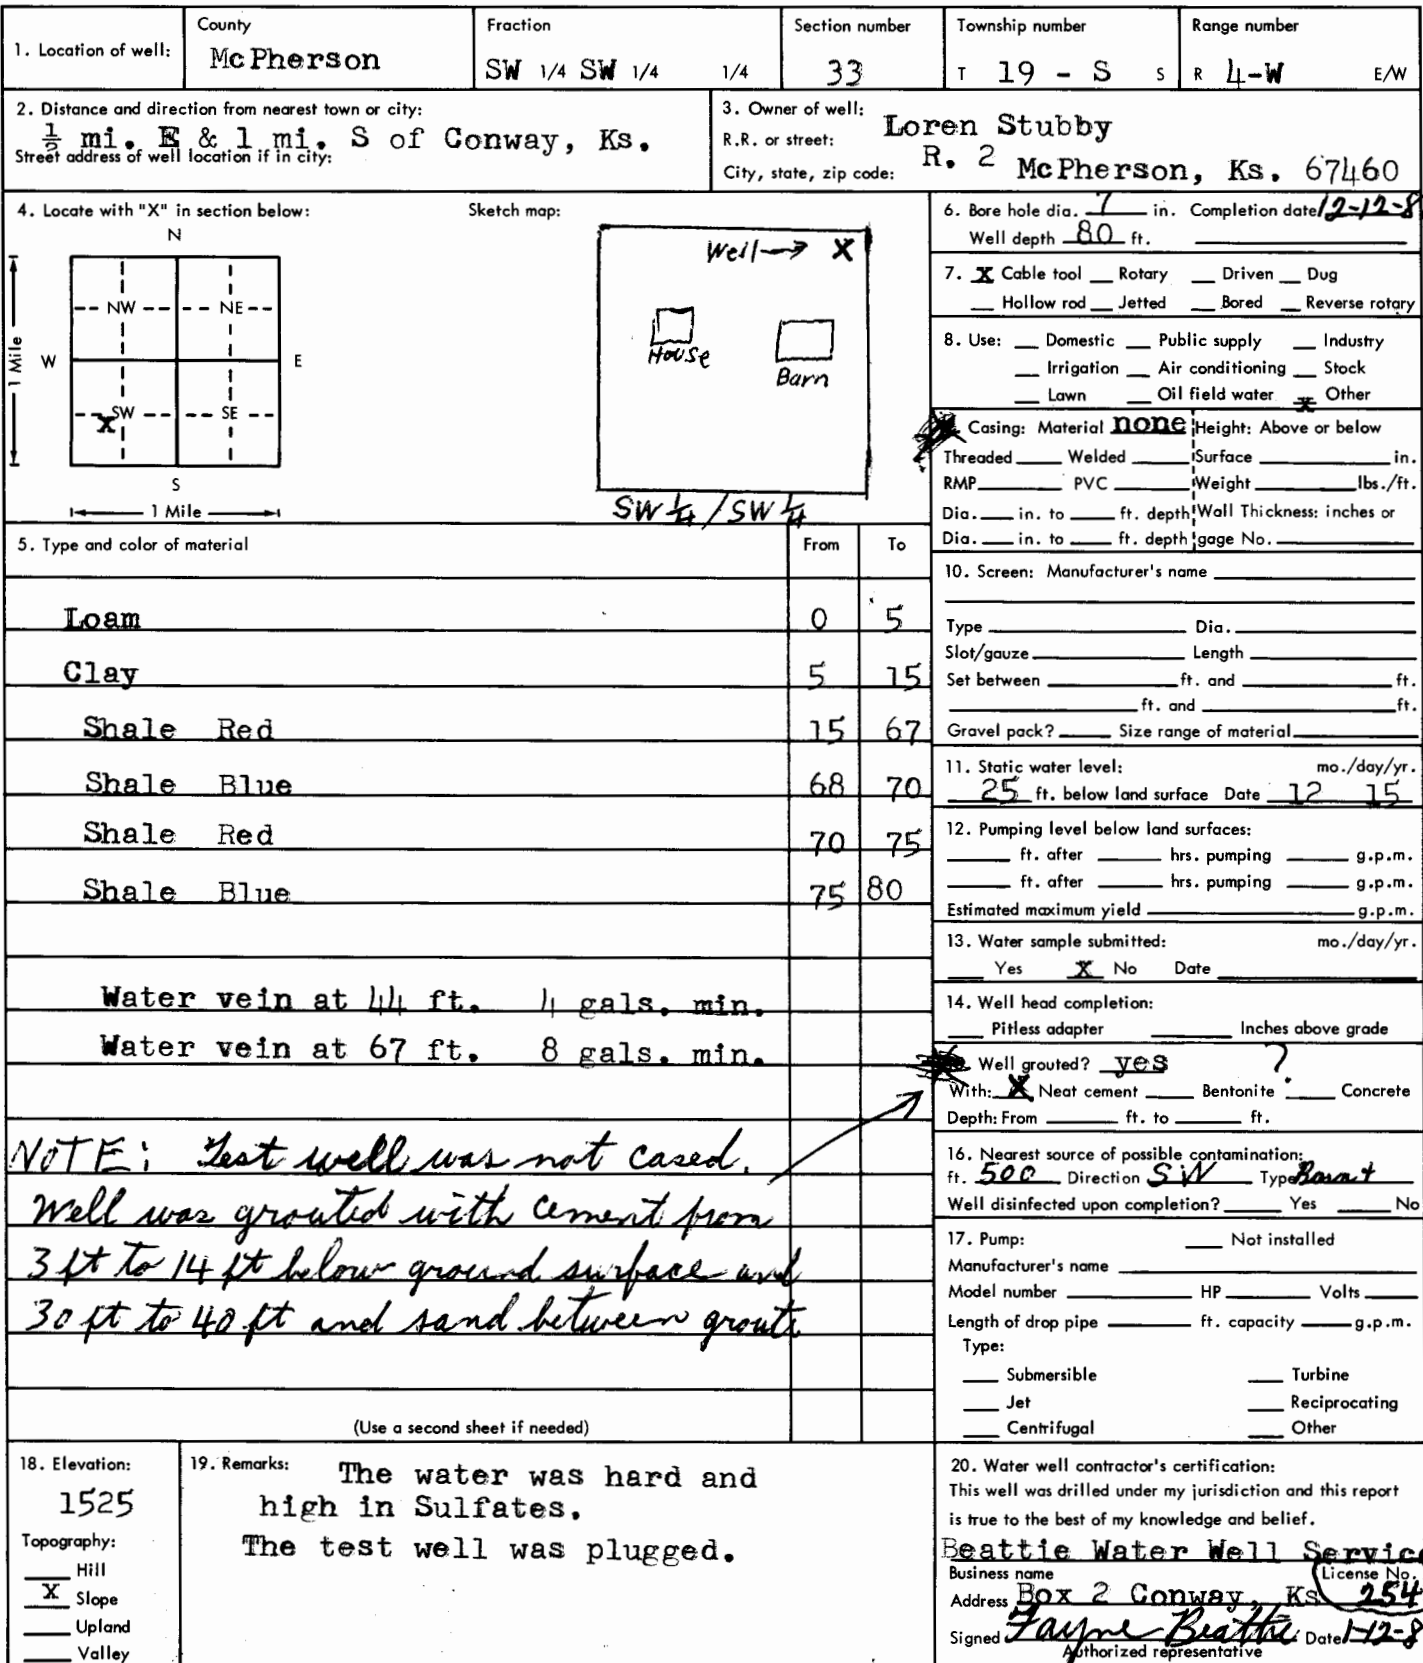 1. Location of well:
County
McPherson
Fraction
SW 1/4 SW 1/4 1/4
Section number
33
Township number
T 19 - S S
Range number
R 4-W E/W
2. Distance and direction from nearest town or city:
½ mi. E & 1 mi. S of Conway, Ks.
Street address of well location if in city:
3. Owner of well:
Loren Stubby
R.R. or street:
R. 2
City, state, zip code:
McPherson, Ks. 67460
4. Locate with "X" in section below:
N
NW NE
W E
SW SE
X
S
1 Mile
1 Mile
Sketch map:
Well → X
House
Barn
SW ¼ / SW ¼
6. Bore hole dia. 7 in. Completion date 12-12-8
Well depth 80 ft.
7. X Cable tool __ Rotary __ Driven __ Dug
__ Hollow rod __ Jetted __ Bored __ Reverse rotary
8. Use: __ Domestic __ Public supply __ Industry
__ Irrigation __ Air conditioning __ Stock
__ Lawn __ Oil field water X Other
Casing: Material none Height: Above or below
Threaded ____ Welded ____ Surface ____ in.
RMP ____ PVC ____ Weight ____ lbs./ft.
Dia. __ in. to __ ft. depth Wall Thickness: inches or
Dia. __ in. to __ ft. depth gage No. ____
5. Type and color of material From To
Loam 0 5
Clay 5 15
Shale Red 15 67
Shale Blue 68 70
Shale Red 70 75
Shale Blue 75 80
Water vein at 44 ft. 4 gals. min.
Water vein at 67 ft. 8 gals. min.
NOTE: Test well was not cased.
Well was grouted with cement from
3 ft to 14 ft below ground surface and
30 ft to 40 ft and sand between grouts
(Use a second sheet if needed)
10. Screen: Manufacturer's name ____
Type ____ Dia. ____
Slot/gauze ____ Length ____
Set between ____ ft. and ____ ft.
____ ft. and ____ ft.
Gravel pack? ____ Size range of material ____
11. Static water level: mo./day/yr.
25 ft. below land surface Date 12 15
12. Pumping level below land surfaces:
____ ft. after ____ hrs. pumping ____ g.p.m.
____ ft. after ____ hrs. pumping ____ g.p.m.
Estimated maximum yield ____ g.p.m.
13. Water sample submitted: mo./day/yr.
__ Yes X No Date ____
14. Well head completion:
__ Pitless adapter ____ Inches above grade
Well grouted? yes ?
With: X Neat cement __ Bentonite __ Concrete
Depth: From ____ ft. to ____ ft.
16. Nearest source of possible contamination:
ft. 500 Direction SW Type
Well disinfected upon completion? __ Yes __ No
17. Pump: __ Not installed
Manufacturer's name ____
Model number ____ HP ____ Volts ____
Length of drop pipe ____ ft. capacity ____ g.p.m.
Type:
__ Submersible __ Turbine
__ Jet __ Reciprocating
__ Centrifugal __ Other
18. Elevation:
1525
Topography:
__ Hill
X Slope
__ Upland
__ Valley
19. Remarks: The water was hard and
high in Sulfates.
The test well was plugged.
20. Water well contractor's certification:
This well was drilled under my jurisdiction and this report
is true to the best of my knowledge and belief.
Beattie Water Well Service
Business name License No.
Address Box 2 Conway, Ks 254
Signed Fayne Beattie Date 1-12-8
Authorized representative